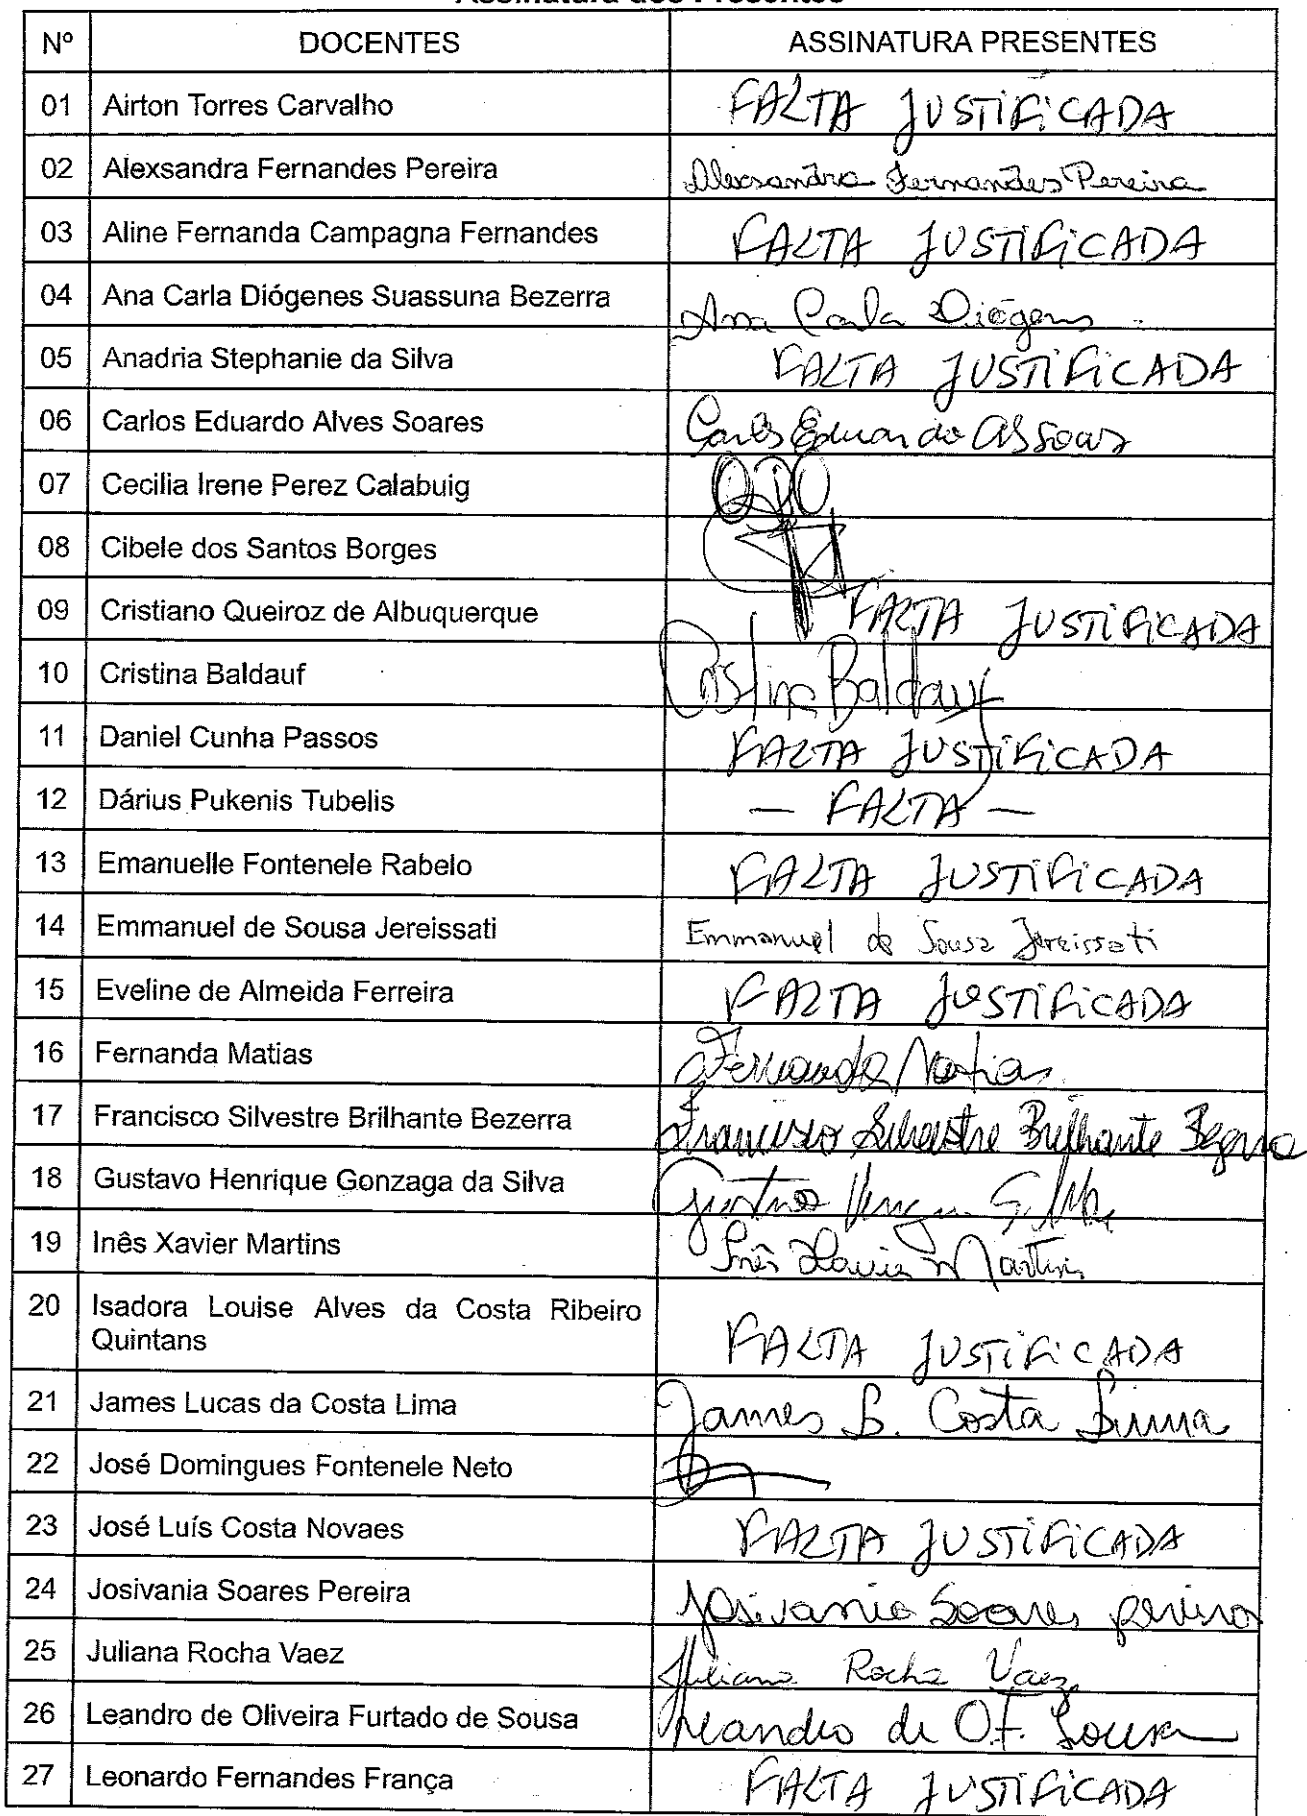 Assinatura dos Presentes
Nº DOCENTES ASSINATURA PRESENTES
01 Airton Torres Carvalho FALTA JUSTIFICADA
02 Alexsandra Fernandes Pereira Alexsandra Fernandes Pereira
03 Aline Fernanda Campagna Fernandes FALTA JUSTIFICADA
04 Ana Carla Diógenes Suassuna Bezerra Ana Carla Diógenes
05 Anadria Stephanie da Silva FALTA JUSTIFICADA
06 Carlos Eduardo Alves Soares Carlos Eduardo A S Soares
07 Cecilia Irene Perez Calabuig
08 Cibele dos Santos Borges
09 Cristiano Queiroz de Albuquerque FALTA JUSTIFICADA
10 Cristina Baldauf Cristina Baldauf
11 Daniel Cunha Passos FALTA JUSTIFICADA
12 Dárius Pukenis Tubelis — FALTA —
13 Emanuelle Fontenele Rabelo FALTA JUSTIFICADA
14 Emmanuel de Sousa Jereissati Emmanuel de Sousa Jereissati
15 Eveline de Almeida Ferreira FALTA JUSTIFICADA
16 Fernanda Matias Fernanda Matias
17 Francisco Silvestre Brilhante Bezerra Francisco Silvestre Brilhante Bezerra
18 Gustavo Henrique Gonzaga da Silva Gustavo Henrique G. Silva
19 Inês Xavier Martins Inês Xavier Martins
20 Isadora Louise Alves da Costa Ribeiro
Quintans FALTA JUSTIFICADA
21 James Lucas da Costa Lima James L. Costa Lima
22 José Domingues Fontenele Neto
23 José Luís Costa Novaes FALTA JUSTIFICADA
24 Josivania Soares Pereira Josivania Soares Pereira
25 Juliana Rocha Vaez Juliana Rocha Vaez
26 Leandro de Oliveira Furtado de Sousa Leandro de O.F. Sousa
27 Leonardo Fernandes França FALTA JUSTIFICADA